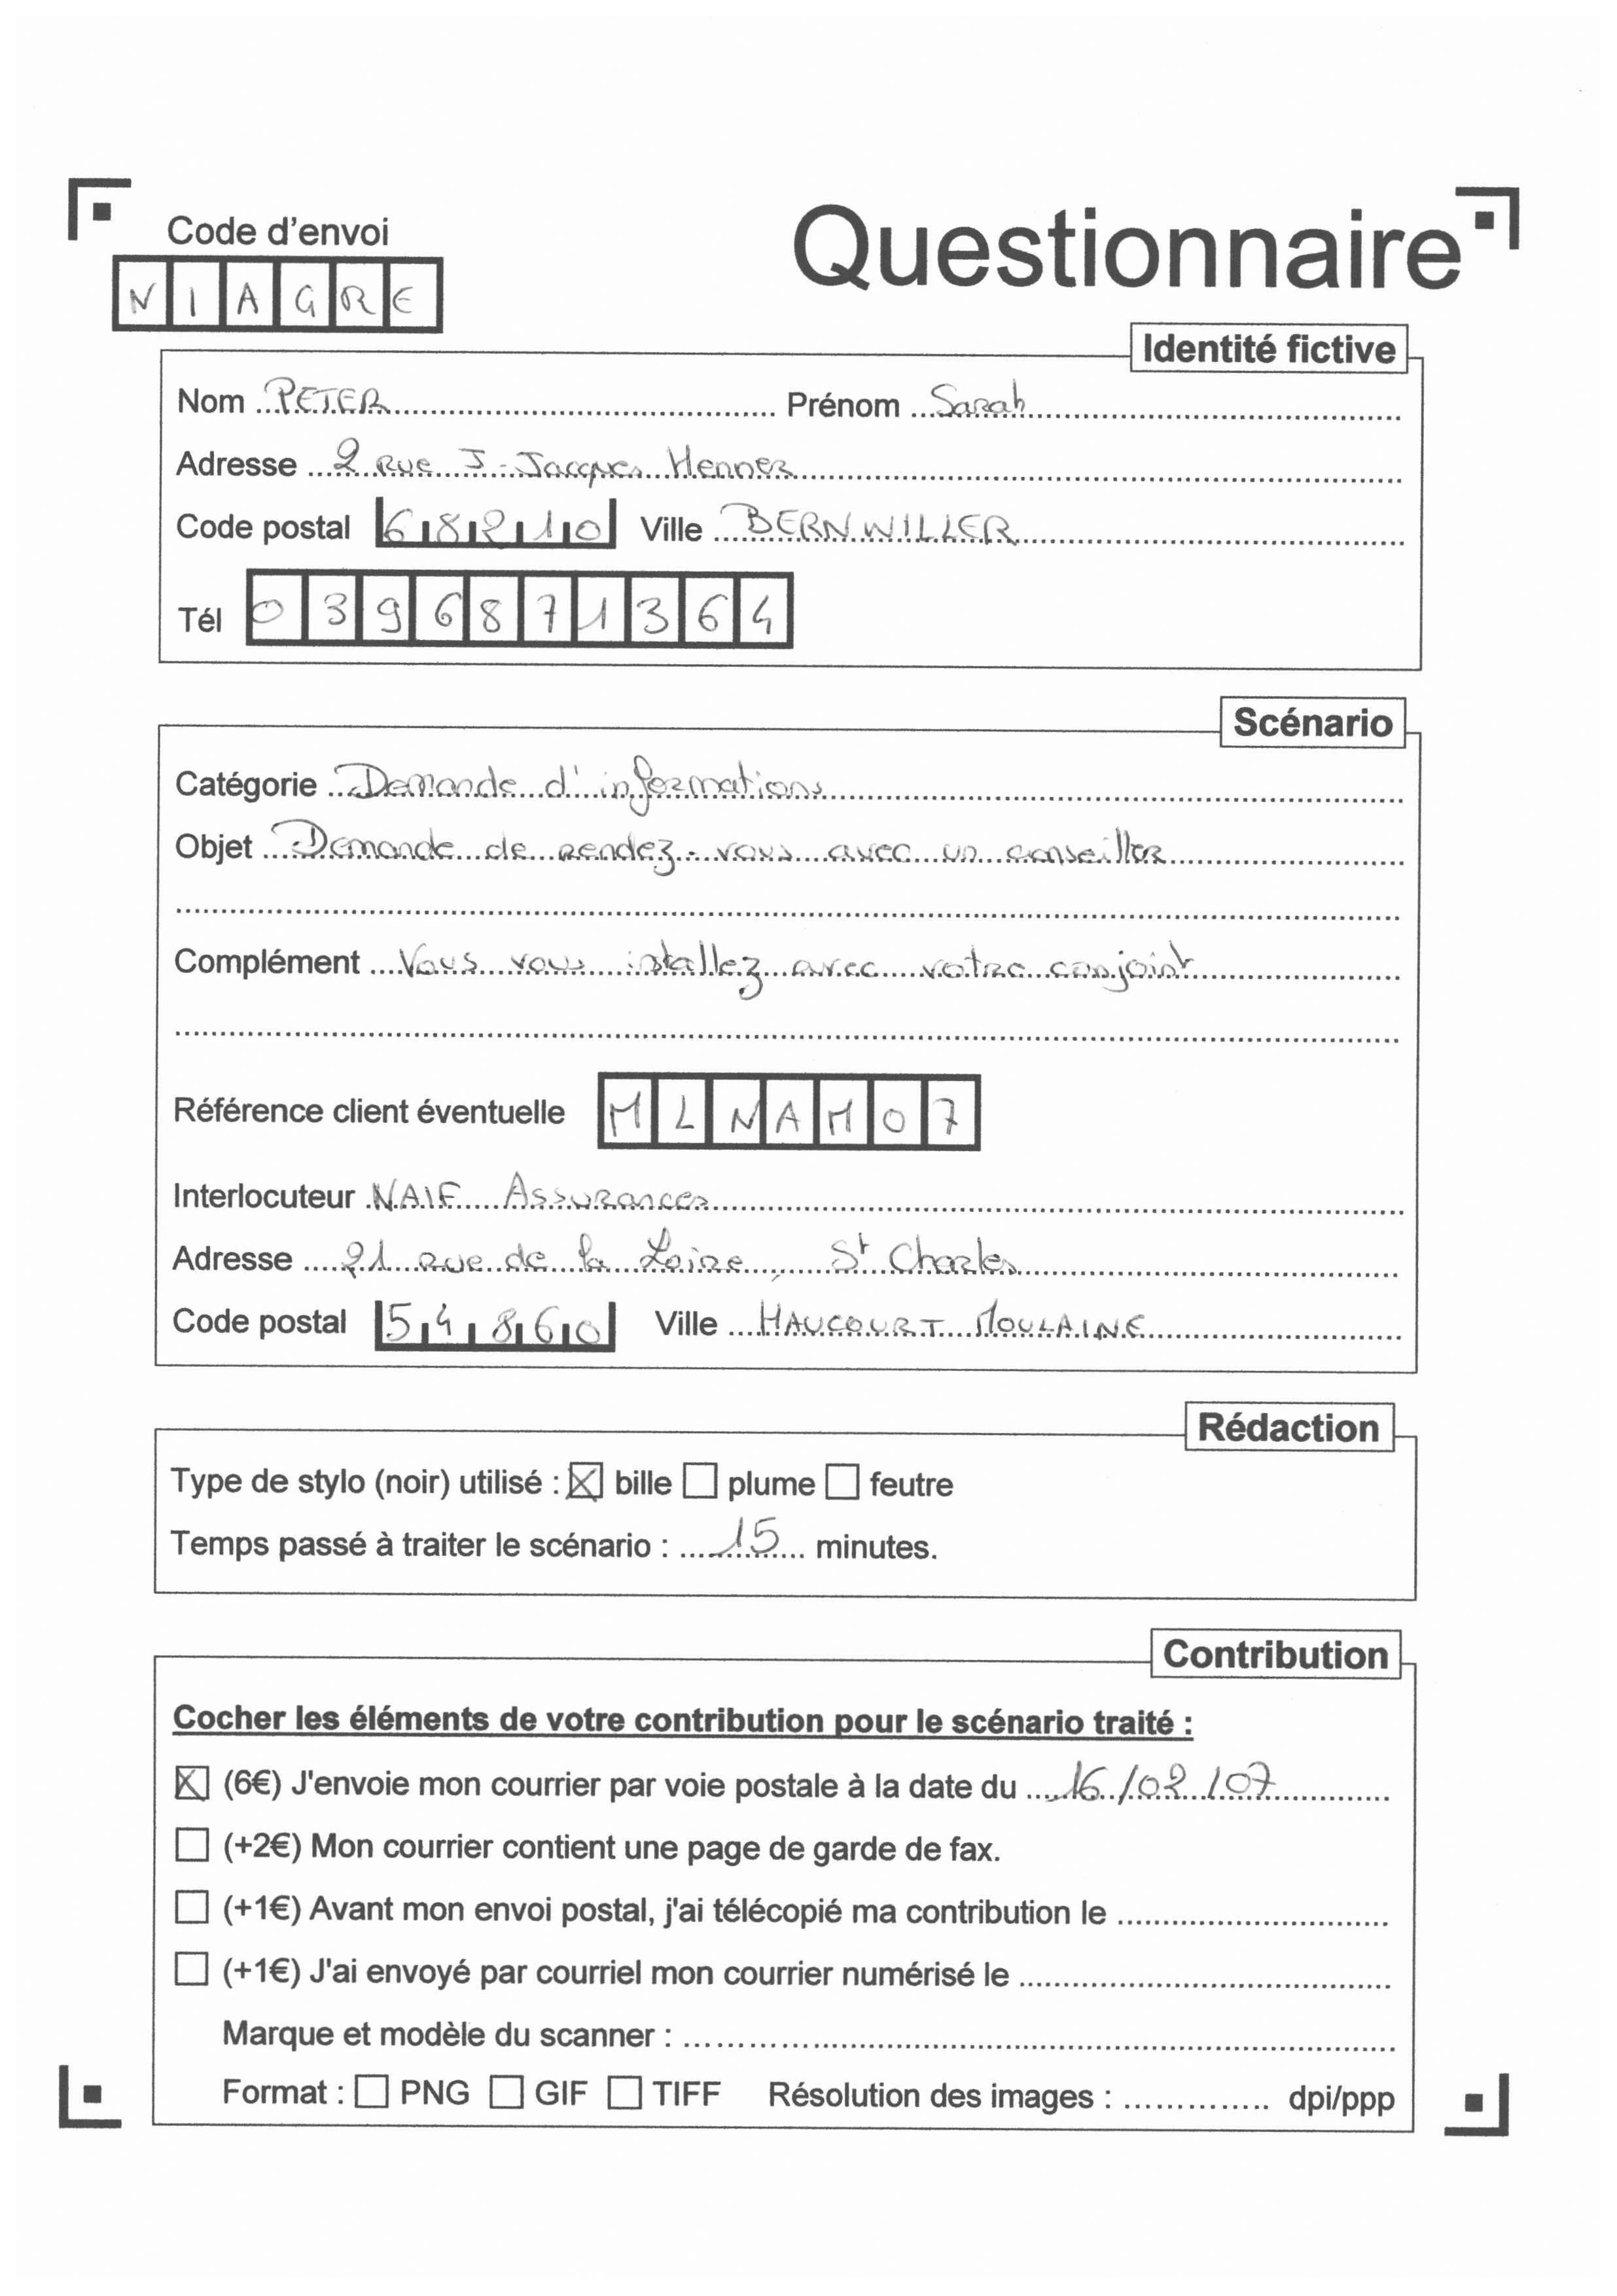 Code d'envoi
Questionnaire
NIAGRE
Identité fictive
Nom PETER Prénom Sarah
Adresse 2 Rue J-Jacques Henner
Code postal 68210 Ville BERNWILLER
Tél 0396871364
Scénario
Catégorie Demande d'informations
Objet Demande de rendez-vous avec un conseiller
Complément Vous vous installez avec votre conjoint
Référence client éventuelle MLNAM07
Interlocuteur NAIF Assurances
Adresse 21 rue de la Loire, St Charles
Code postal 54860 Ville HAUCOURT MOULAINE
Rédaction
Type de stylo (noir) utilisé : bille plume feutre
Temps passé à traiter le scénario : 15 minutes.
Contribution
Cocher les éléments de votre contribution pour le scénario traité :
(6€) J'envoie mon courrier par voie postale à la date du 16/02/07
(+2€) Mon courrier contient une page de garde de fax.
(+1€) Avant mon envoi postal, j'ai télécopié ma contribution le
(+1€) J'ai envoyé par courriel mon courrier numérisé le
Marque et modèle du scanner :
Format : PNG GIF TIFF Résolution des images : dpi/ppp